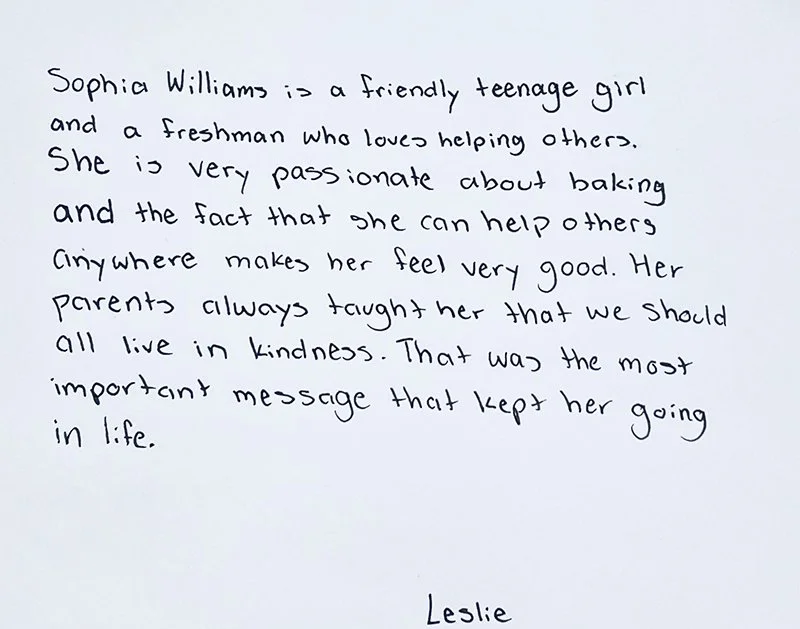 Sophia Williams is a friendly teenage girl
and a freshman who loves helping others.
She is very passionate about baking
and the fact that she can help others
anywhere makes her feel very good. Her
parents always taught her that we should
all live in kindness. That was the most
important message that kept her going
in life.
Leslie